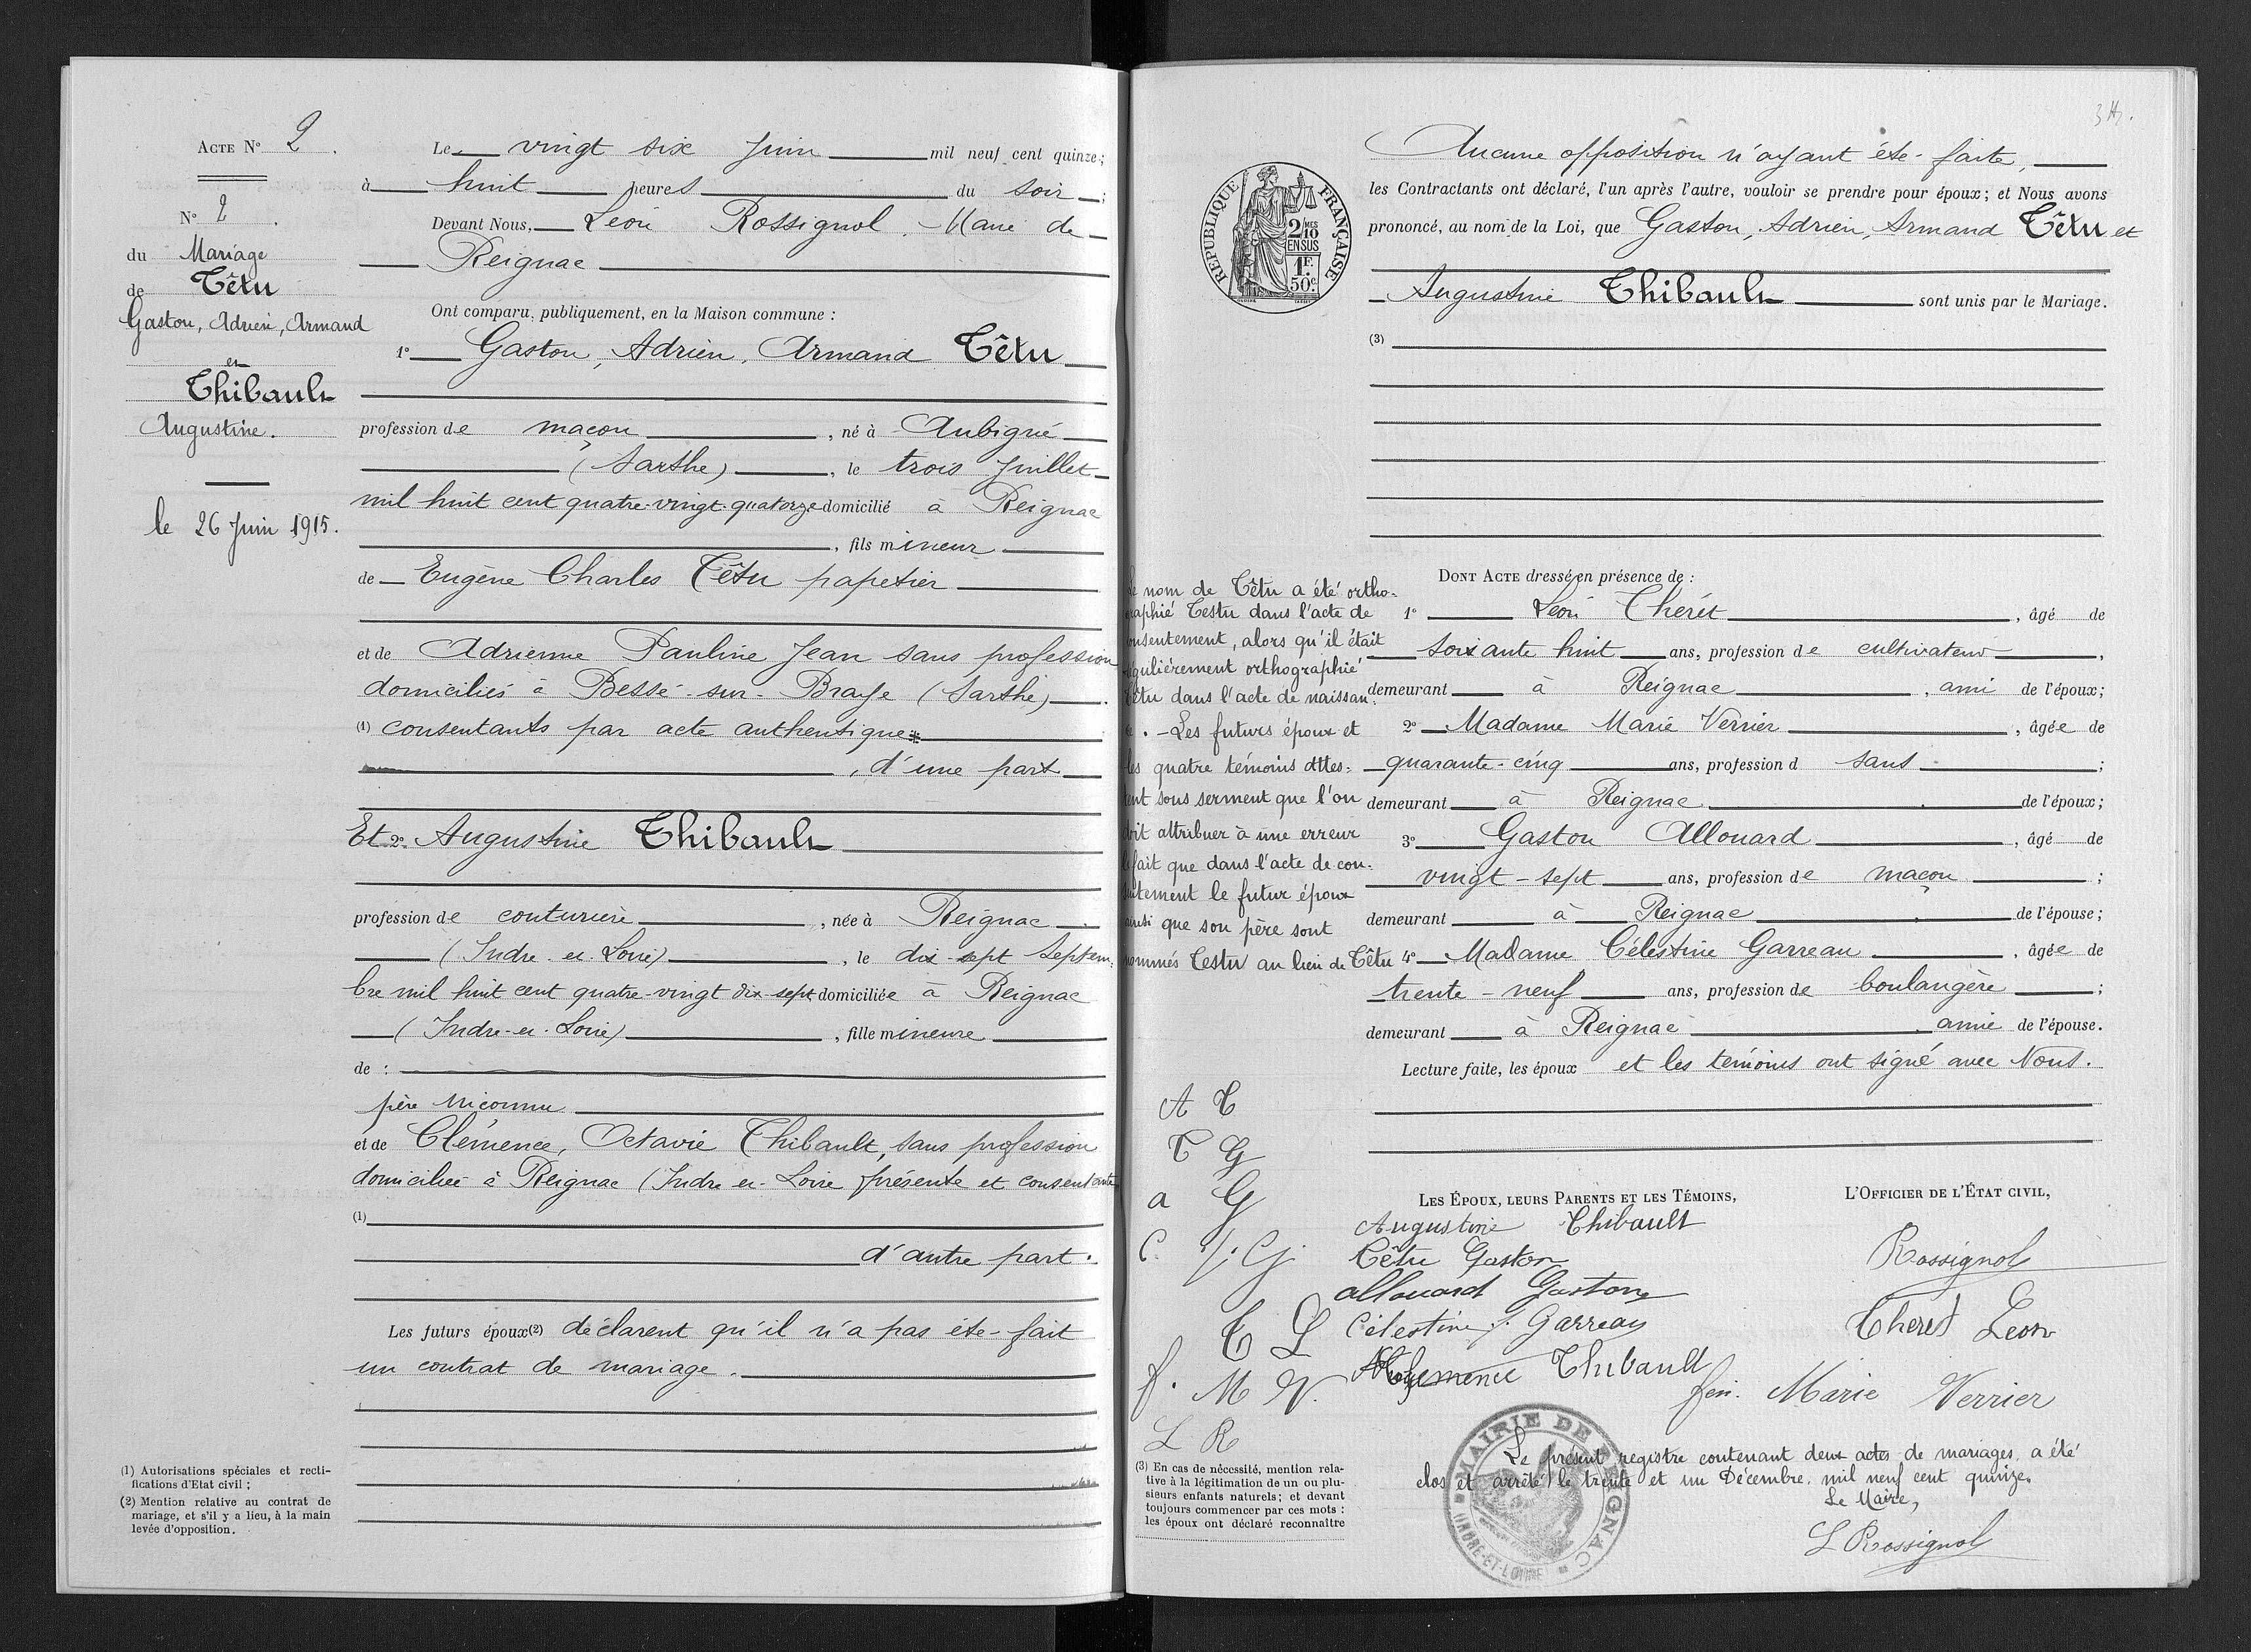 Acte N° 2.
N° 2.
du Mariage
de Têtu
Gaston, Adrien, Armand
et
Thibault
Augustine.
le 26 Juin 1915.
Le vingt six Juin mil neuf cent quinze;
à huit heures du soir;
Devant Nous, Léon Rossignol, Maire de
Reignac
Ont comparu, publiquement, en la Maison commune :
1° Gaston, Adrien, Armand Têtu
profession de maçon, né à Aubigné
(Sarthe), le trois Juillet
mil huit cent quatre-vingt-quatorze domicilié à Reignac
, fils mineur
de Eugène Charles Têtu papetier
et de Adrienne Pauline Jean sans profession
domiciliés à Bessé-sur-Braye (Sarthe).
(1) consentants par acte authentique
, d'une part
Et 2° Augustine Thibault
profession de couturière, née à Reignac
(Indre-et-Loire), le dix-sept Septem-
bre mil huit cent quatre-vingt dix-sept domiciliée à Reignac
(Indre-et-Loire), fille mineure
de :
père inconnu
et de Clémence, Octavie Thibault, sans profession
domiciliée à Reignac (Indre-et-Loire présente et consentante
(1)
d'autre part.
Les futurs époux (2) déclarent qu'il n'a pas été fait
un contrat de mariage.
(1) Autorisations spéciales et recti-
fications d'Etat civil ;
(2) Mention relative au contrat de
mariage, et s'il y a lieu, à la main
levée d'opposition.
RÉPUBLIQUE FRANÇAISE
2/10 MES
EN SUS
1F.
50c.
Aucune opposition n'ayant été faite,
les Contractants ont déclaré, l'un après l'autre, vouloir se prendre pour époux; et Nous avons
prononcé, au nom de la Loi, que Gaston, Adrien, Armand Têtu et
Augustine Thibault sont unis par le Mariage.
(3)
Le nom de Têtu a été ortho-
graphié Testu dans l'acte de
consentement, alors qu'il était
régulièrement orthographié
Têtu dans l'acte de naissan-
ce. - Les futurs époux et
les quatre témoins attes-
tent sous serment que l'on
doit attribuer à une erreur
le fait que dans l'acte de con-
sentement le futur époux
ainsi que son père sont
nommés Testu au lieu de Têtu
Dont Acte dressé en présence de :
1° Léon Théret, âgé de
soixante huit ans, profession de cultivateur,
demeurant à Reignac, ami de l'époux;
2° Madame Marie Verrier, âgée de
quarante-cinq ans, profession d sans;
demeurant à Reignac de l'époux;
3° Gaston Allouard, âgé de
vingt-sept ans, profession de maçon;
demeurant à Reignac de l'épouse;
4° Madame Célestine Garreau, âgée de
trente-neuf ans, profession de boulangère;
demeurant à Reignac amie de l'épouse.
Lecture faite, les époux et les témoins ont signé avec Nous.
A T
T G
a G
C. j. G
T L
f. M V.
L R
Les Époux, leurs Parents et les Témoins,
L'Officier de l'État civil,
Augustine Thibault
Têtu Gaston
Rossignol
allouard Gaston
Célestine j. Garreau
Théret Léon
Clemence Thibault
fem. Marie Verrier
(3) En cas de nécessité, mention rela-
tive à la légitimation de un ou plu-
sieurs enfants naturels; et devant
toujours commencer par ces mots :
les époux ont déclaré reconnaître
MAIRIE DE REIGNAC
INDRE-ET-LOIRE
Le présent registre contenant deux actes de mariages, a été
clos et arrêté le trente et un Décembre, mil neuf cent quinze.
Le Maire,
L Rossignol